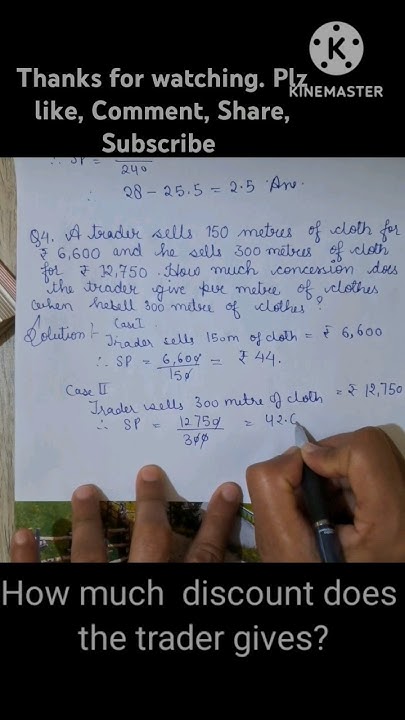 Thanks for watching. Plz
like, Comment, Share,
Subscribe
KINEMASTER
∴ SP =
240
∴ 28 - 25.5 = 2.5 Ans.
Q4. A trader sells 150 metres of cloth for
₹ 6,600 and he sells 300 metres of cloth
for ₹ 12,750. How much concession does
the trader give per metre of clothes
when he sell 300 metre of clothes?
Case I
Solution:- Trader sells 150m of cloth = ₹ 6,600
∴ SP = 6,600 = ₹ 44.
150
Case II
Trader sells 300 metre of cloth = ₹ 12,750
∴ SP = 12750 = 42.
300
How much discount does
the trader gives?